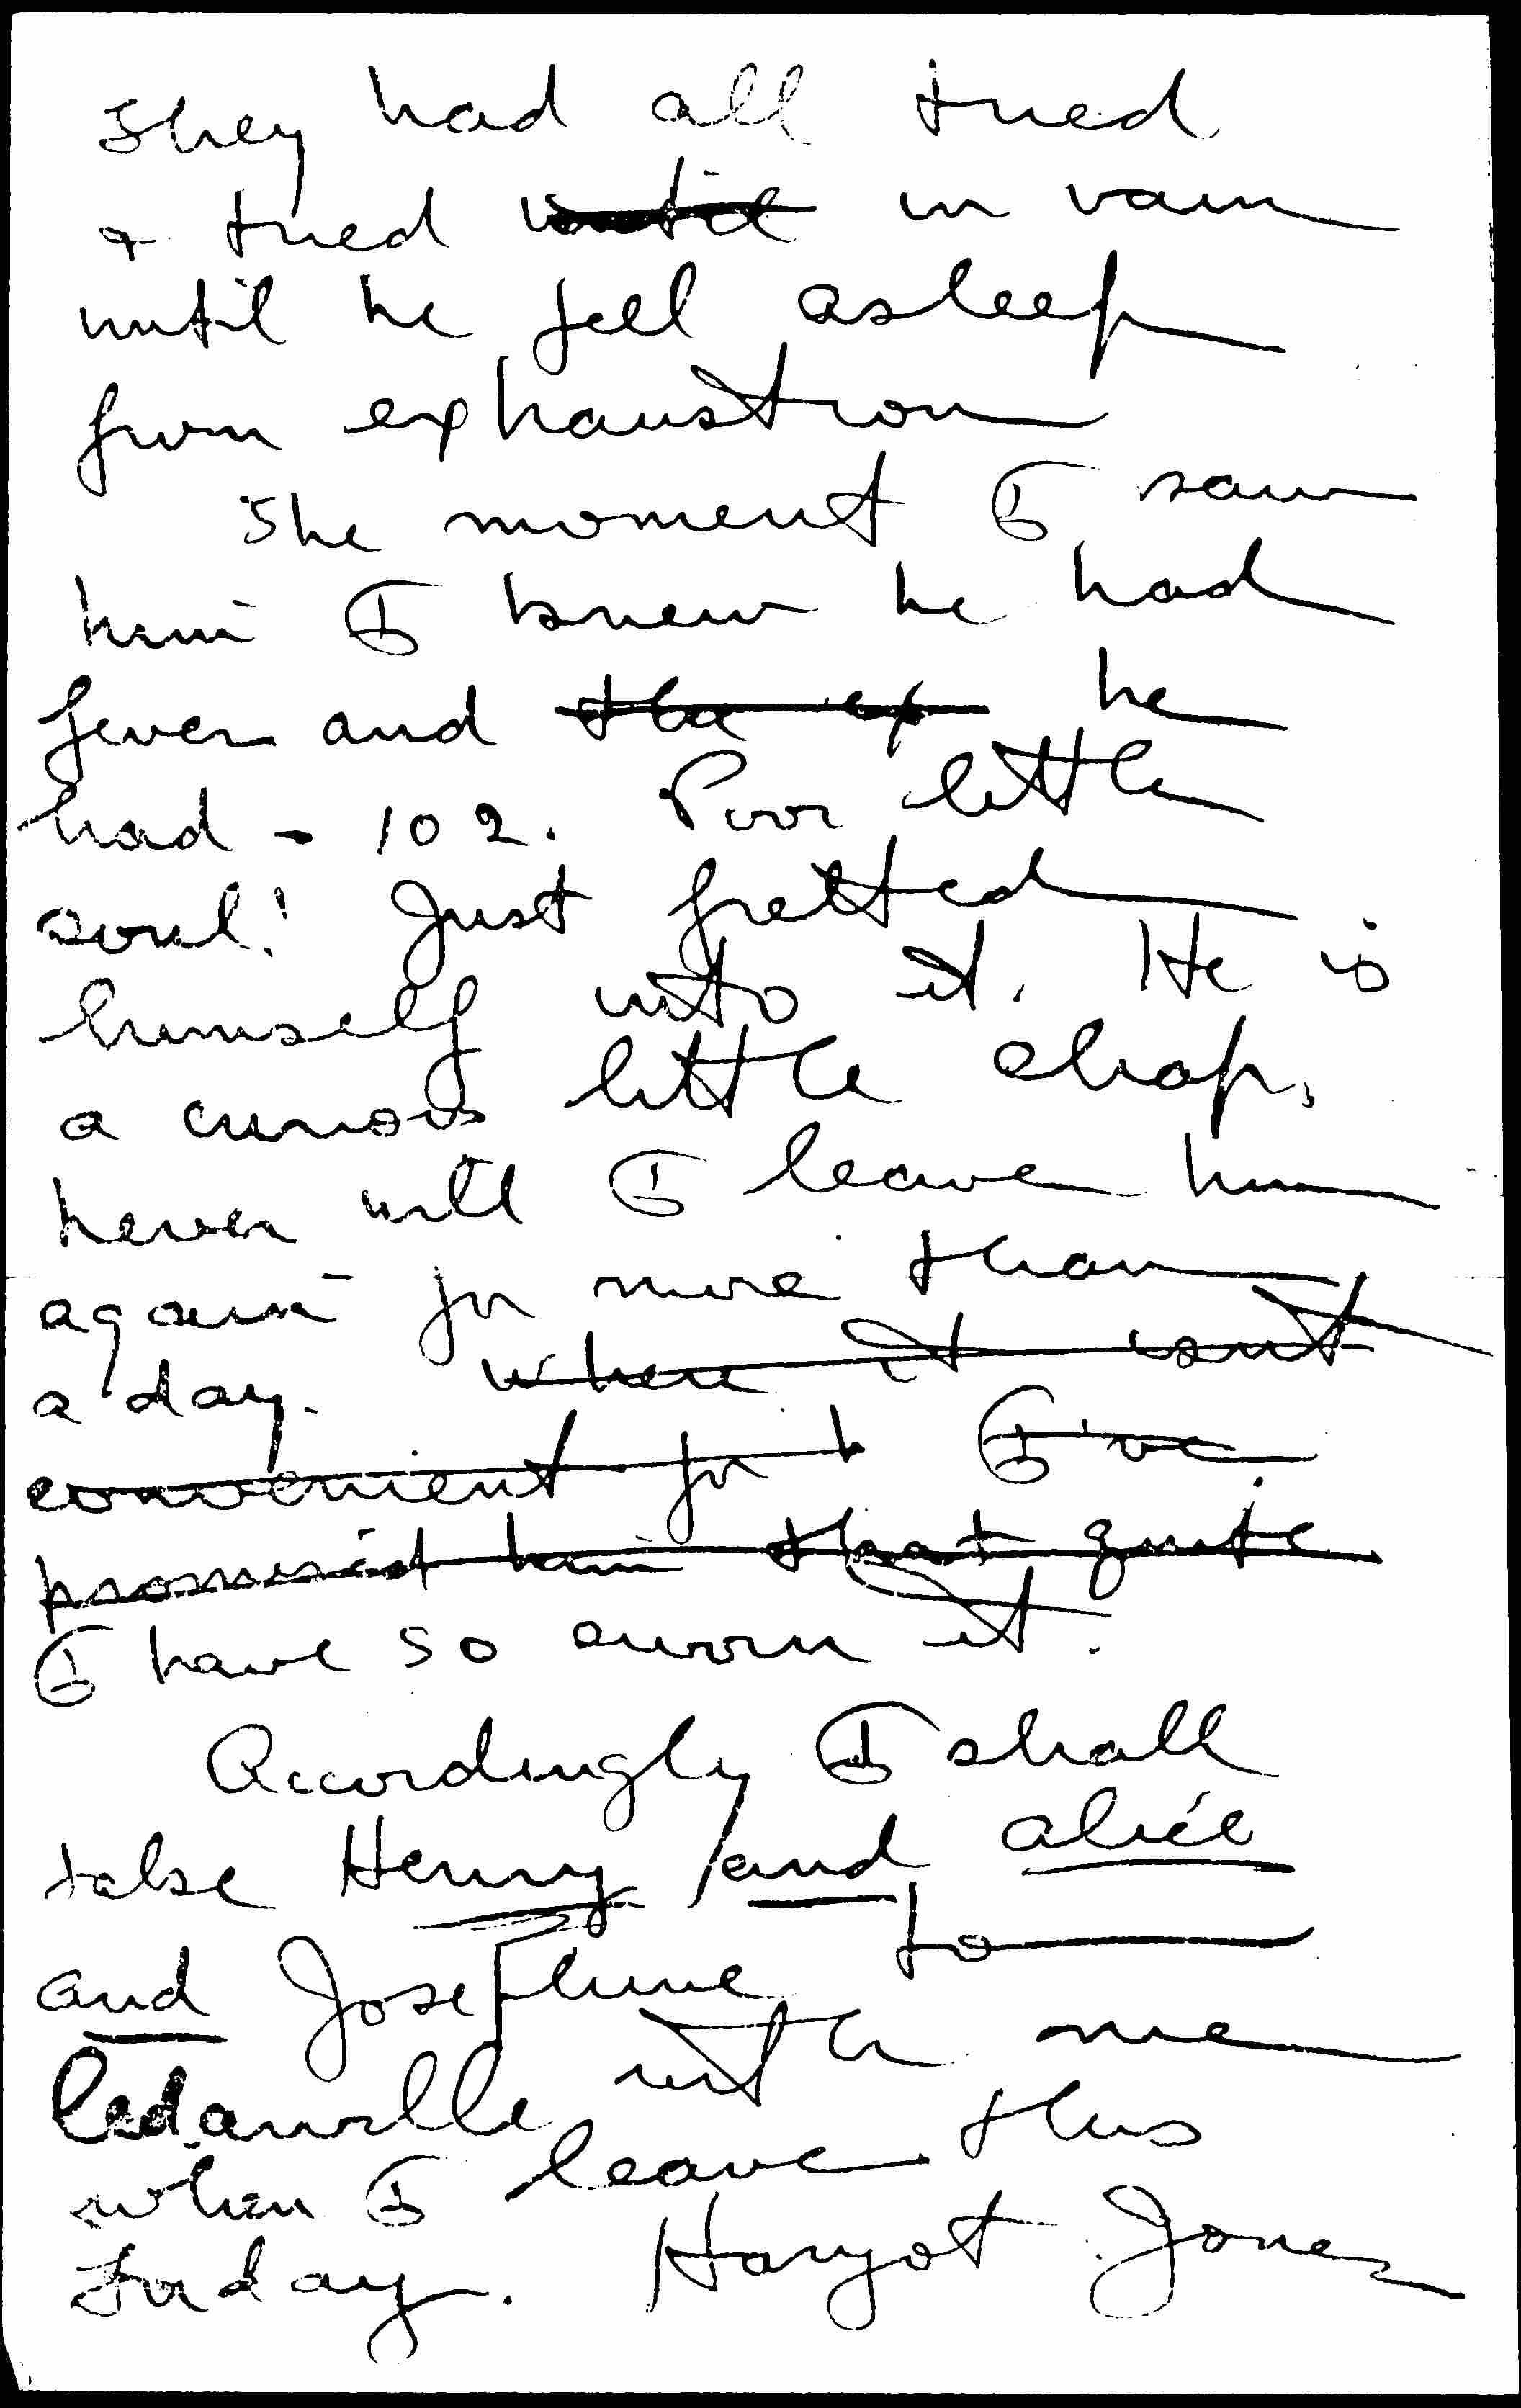 They had all tried
& tried until in vain
until he fell asleep
from exhaustion
The moment I saw
him I knew he had
fever and the ex he
had - 102. Poor little
soul! Just fretted
himself into it. He is
a curious little chap,
never will I leave him
again for more than
a day. where it isn't
convenient for h I've
promised him that quite
I have so sworn it.
Accordingly I shall
take Henry and Alice
and Josephine to
Cedarville with me
when I leave this
Friday. Haryot Jones